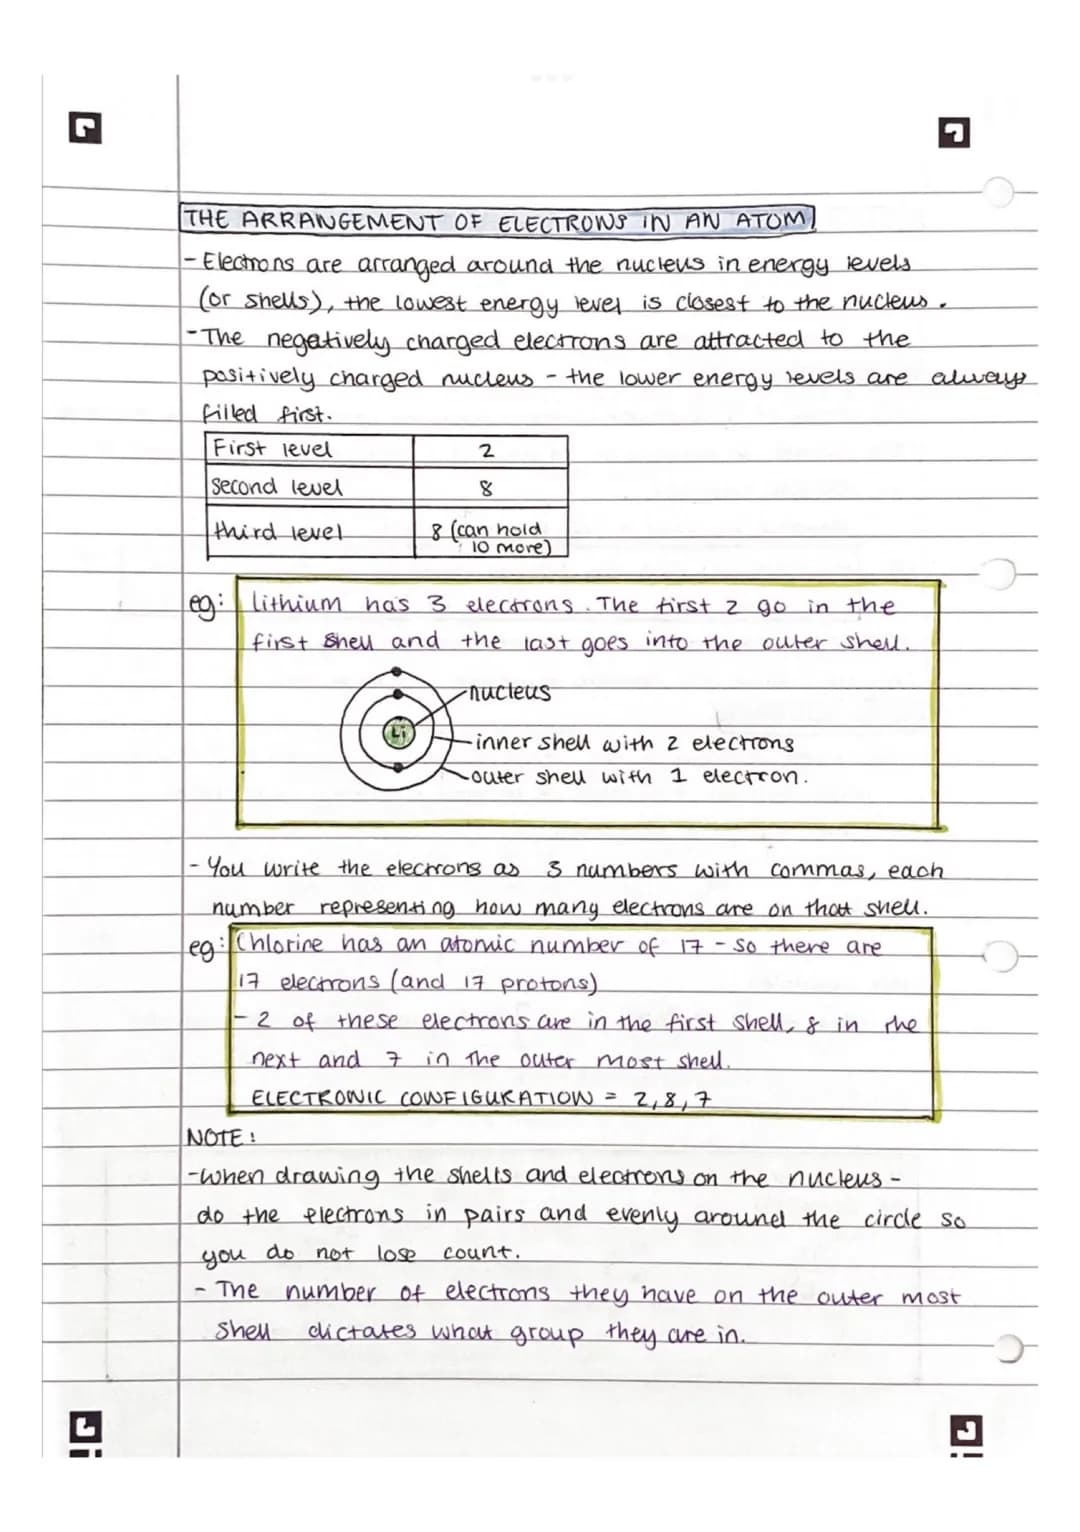 THE ARRANGEMENT OF ELECTRONS IN AN ATOM
- Electrons are arranged around the nucleus in energy levels
(or shells), the lowest energy level is closest to the nucleus.
- The negatively charged electrons are attracted to the
positively charged nucleus - the lower energy levels are always
filled first.
First level 2
Second level 8
third level 8 (can hold
10 more)
eg: Lithium has 3 electrons. The first 2 go in the
first shell and the last goes into the outer shell.
nucleus
Li
inner shell with 2 electrons
outer shell with 1 electron.
- You write the electrons as 3 numbers with commas, each
number representing how many electrons are on that shell.
eg: Chlorine has an atomic number of 17 - so there are
17 electrons (and 17 protons)
- 2 of these electrons are in the first shell, 8 in the
next and 7 in the outer most shell.
ELECTRONIC CONFIGURATION = 2,8,7
NOTE:
- when drawing the shells and electrons on the nucleus -
do the electrons in pairs and evenly around the circle so
you do not lose count.
- The number of electrons they have on the outer most
shell dictates what group they are in.